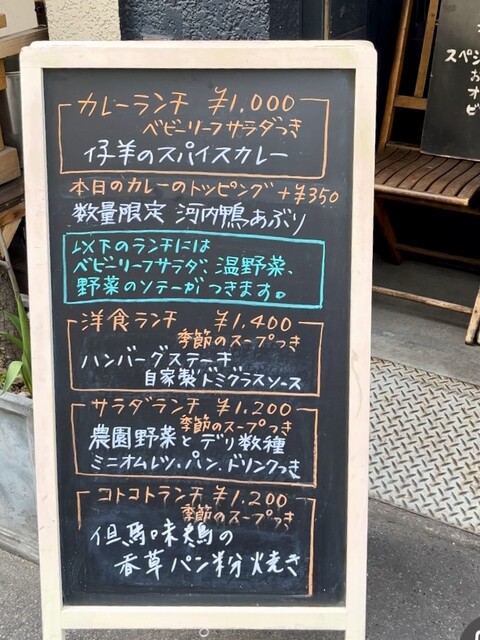 カレーランチ ¥1,000
ベビーリーフサラダつき
仔羊のスパイスカレー
本日のカレーのトッピング +¥350
数量限定 河内鴨あぶり
以下のランチには
ベビーリーフサラダ、温野菜、
野菜のソテーがつきます。
洋食ランチ ¥1,400
季節のスープつき
ハンバーグステーキ
自家製ドミグラスソース
サラダランチ ¥1,200
季節のスープつき
農園野菜とデリ数種
ミニオムレツ・パン、ドリンクつき
コトコトランチ ¥1,200
季節のスープつき
但馬味鶏の
香草パン粉焼き
スペシ